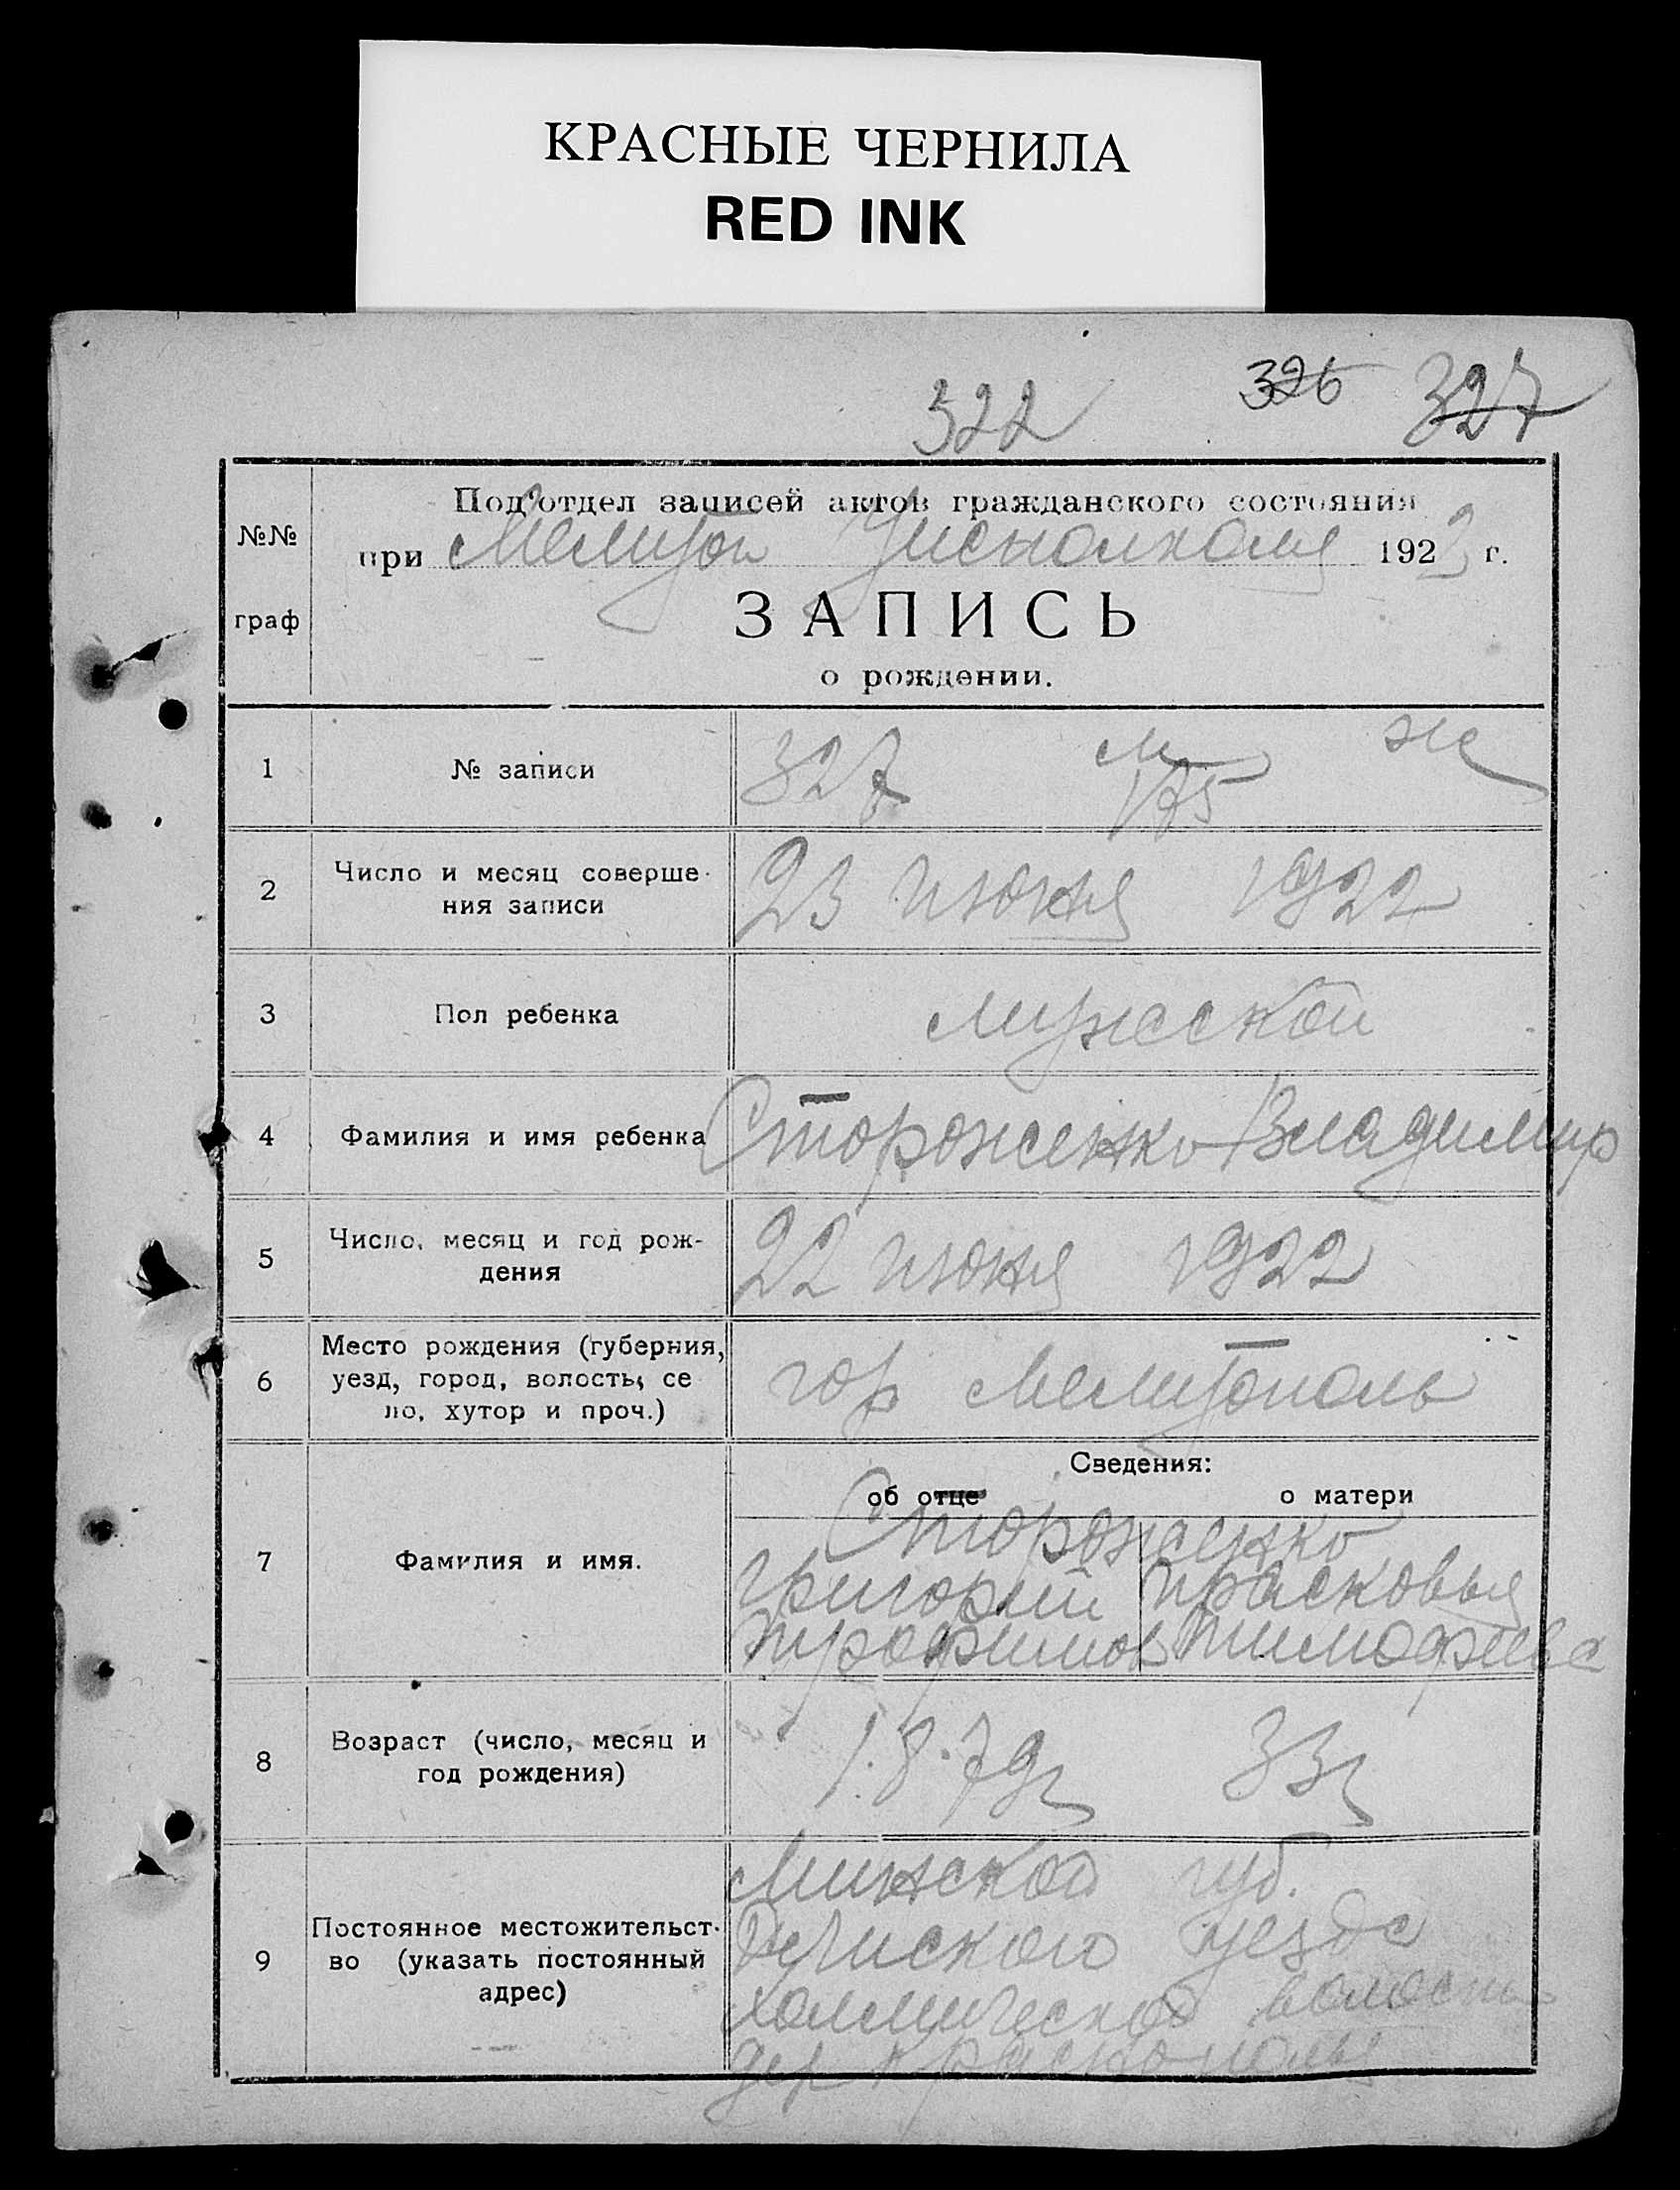 КРАСНЫЕ ЧЕРНИЛА
RED INK
322 326 327
№№ граф
Под'отдел записей актов гражданского состояния
при Мелитоп Уисполкоме 192 г.
ЗАПИСЬ
о рождении.
1 № записи 327 м 175 ж
2 Число и месяц соверше-
ния записи 23 июня 1922
3 Пол ребенка мужской
4 Фамилия и имя ребенка Стороженко Владимир
5 Число, месяц и год рож-
дения 22 июня 1922
6 Место рождения (губерния,
уезд, город, волость, се
ло, хутор и проч.) гор Мелитополь
Сведения:
об отце о матери
7 Фамилия и имя. Стороженко
Григорий Прасковья
Трофимов Тимофеева
8 Возраст (число, месяц и
год рождения) 33
9 Постоянное местожительст-
во (указать постоянный
адрес) Минской губ.
уезда
волости
дер